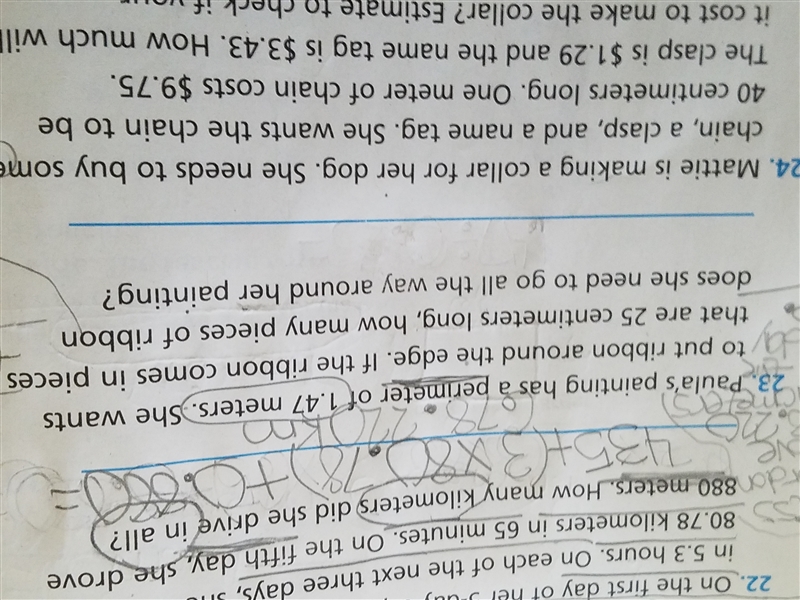 22. On the first day of her
in 5.3 hours. On each of the next three days,
80.78 kilometers in 65 minutes. On the fifth day, she drove
880 meters. How many kilometers did she drive in all?
435+(3×80.78)+0.880=
678.220km
23. Paula's painting has a perimeter of 1.47 meters. She wants
to put ribbon around the edge. If the ribbon comes in pieces
that are 25 centimeters long, how many pieces of ribbon
does she need to go all the way around her painting?
24. Mattie is making a collar for her dog. She needs to buy some
chain, a clasp, and a name tag. She wants the chain to be
40 centimeters long. One meter of chain costs $9.75.
The clasp is $1.29 and the name tag is $3.43. How much will
it cost to make the collar? Estimate to check if your